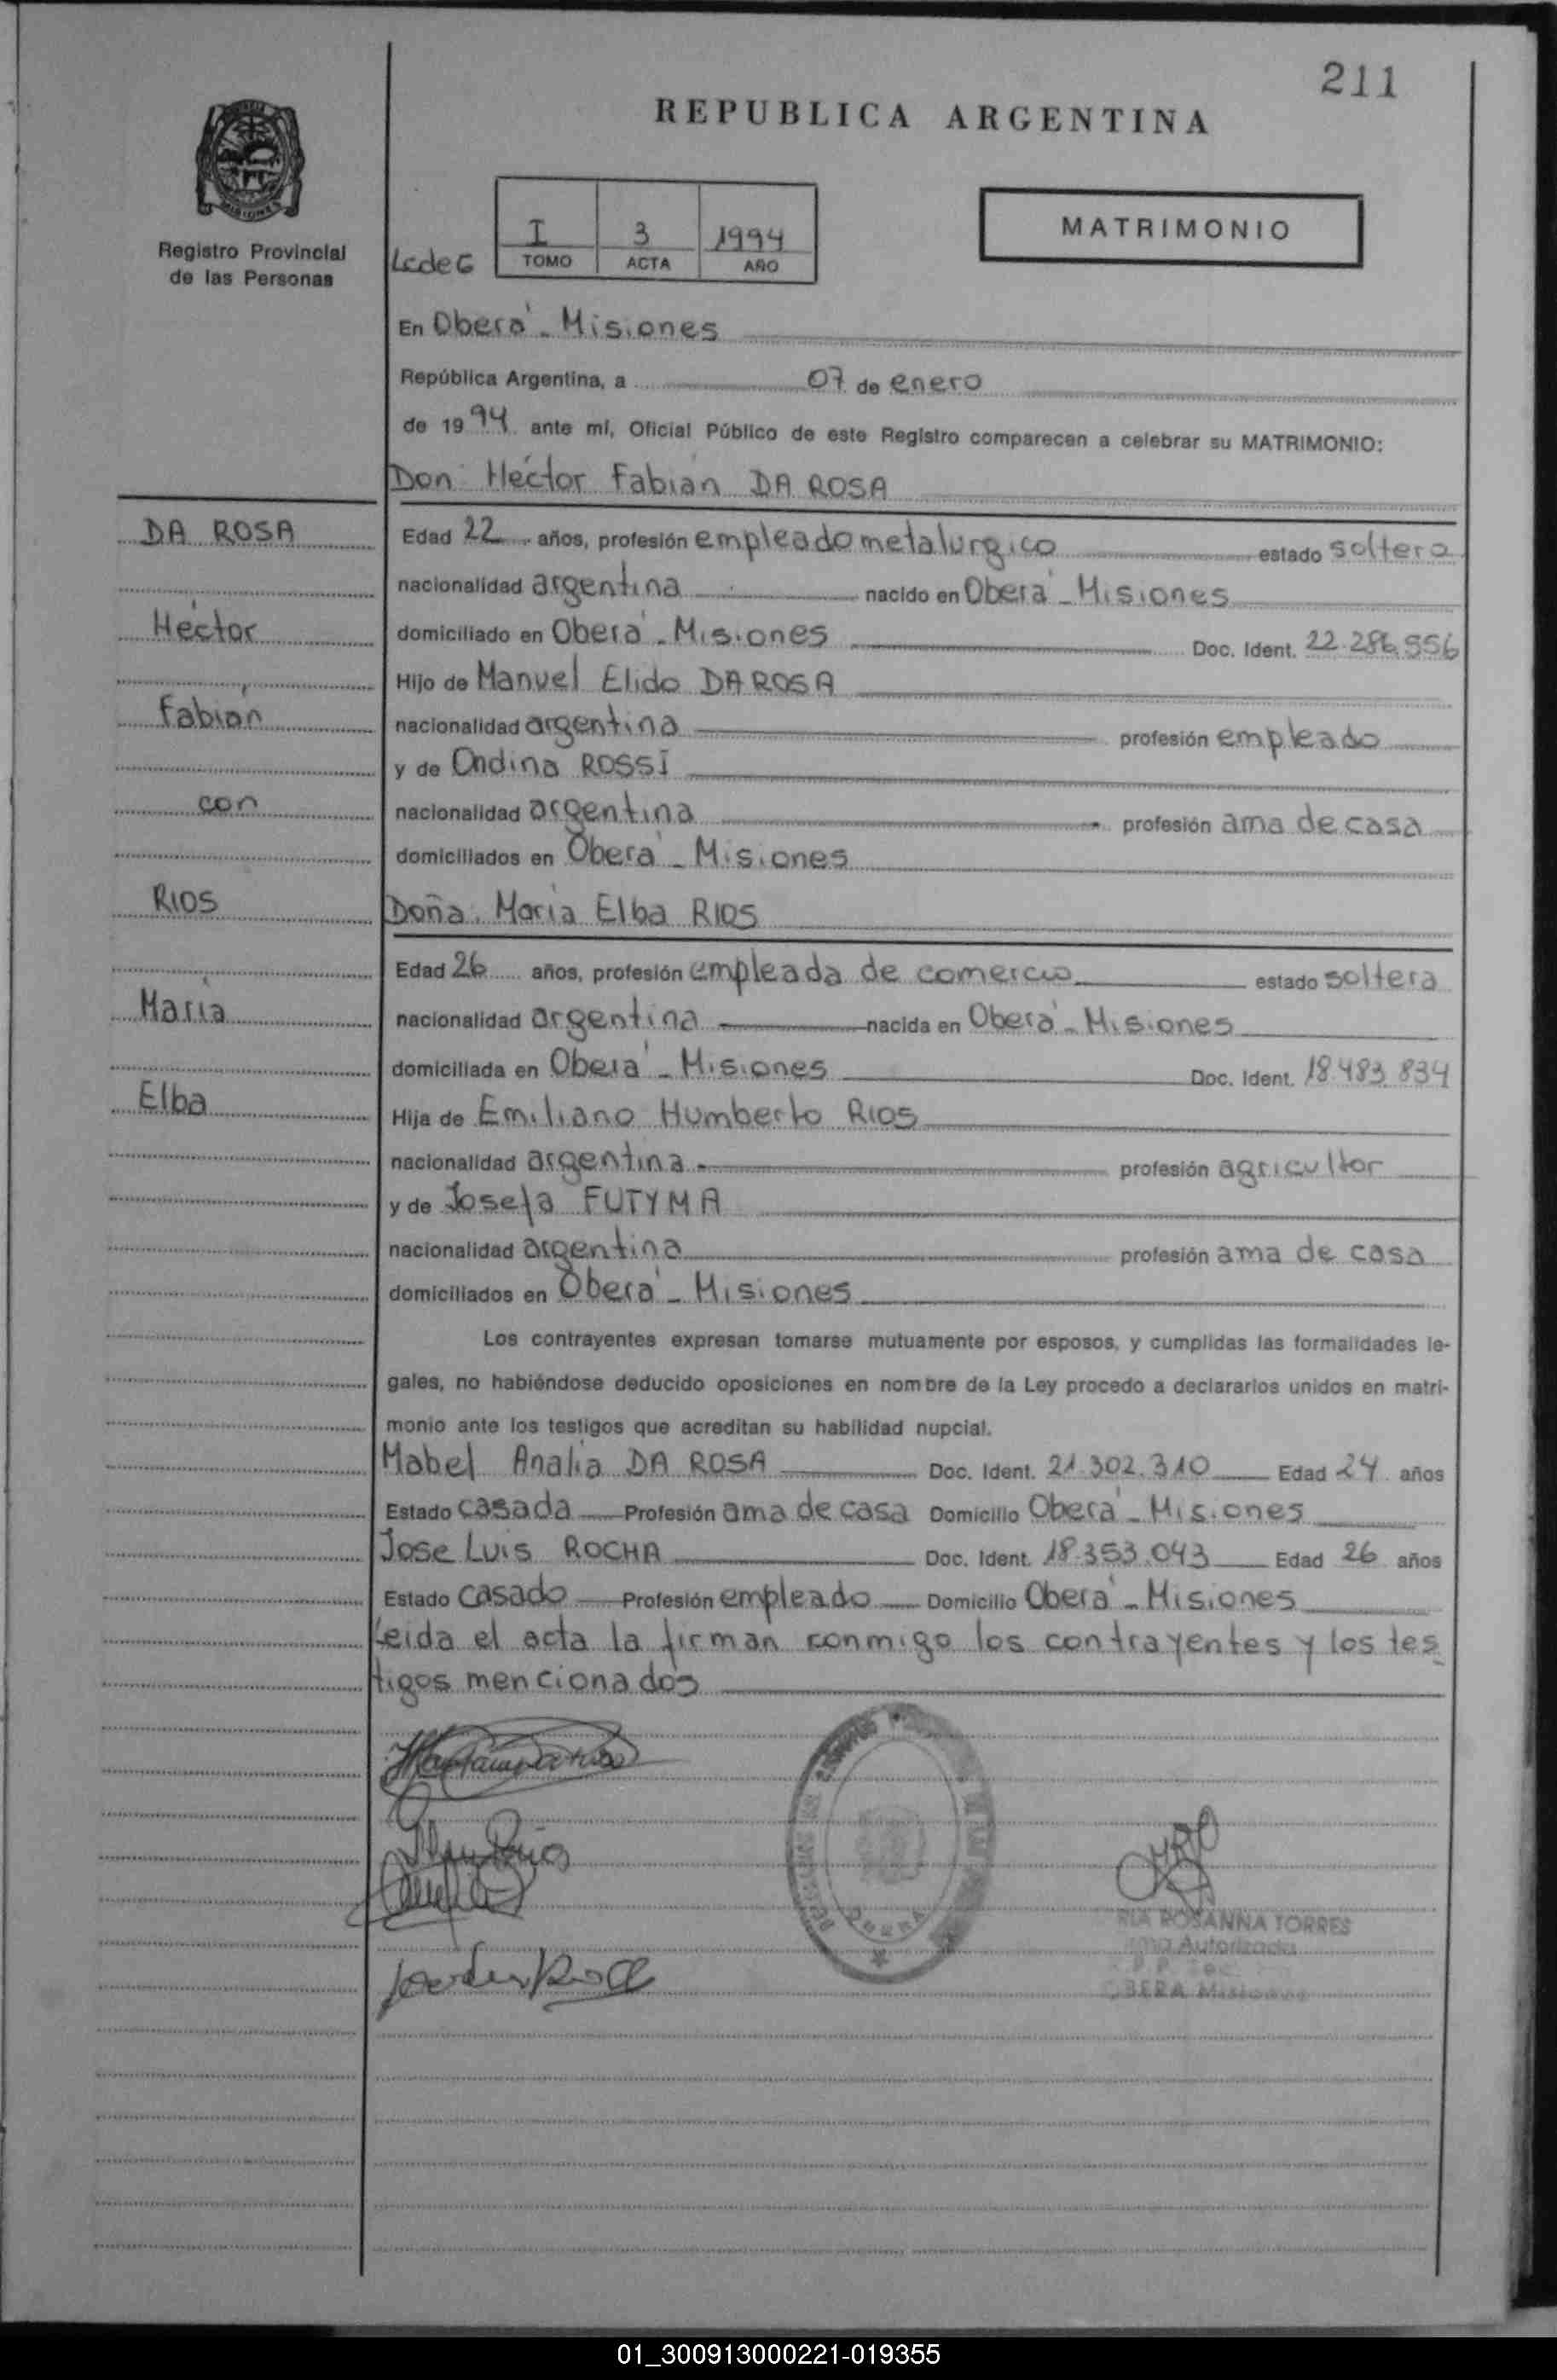 211
REPUBLICA ARGENTINA
MISIONES
Registro Provincial
de las Personas
I 3 1994
TOMO ACTA AÑO
MATRIMONIO
En Oberá - Misiones
República Argentina, a 07 de enero
de 1994 ante mí, Oficial Público de este Registro comparecen a celebrar su MATRIMONIO:
Don Héctor Fabián DA ROSA
DA ROSA
Héctor
Fabián
con
RIOS
María
Elba
Edad 22 años, profesión empleado metalurgico estado soltero
nacionalidad argentina nacido en Oberá - Misiones
domiciliado en Oberá - Misiones Doc. Ident. 22.286.556
Hijo de Manuel Elido DA ROSA
nacionalidad argentina profesión empleado
y de Ondina ROSSI
nacionalidad argentina profesión ama de casa
domiciliados en Oberá - Misiones
Doña María Elba RIOS
Edad 26 años, profesión empleada de comercio estado soltera
nacionalidad argentina nacida en Oberá - Misiones
domiciliada en Oberá - Misiones Doc. Ident. 18.483.834
Hija de Emiliano Humberto RIOS
nacionalidad argentina profesión agricultor
y de Josefa FUTYMA
nacionalidad argentina profesión ama de casa
domiciliados en Oberá - Misiones
Los contrayentes expresan tomarse mutuamente por esposos, y cumplidas las formalidades le-
gales, no habiéndose deducido oposiciones en nombre de la Ley procedo a declararlos unidos en matri-
monio ante los testigos que acreditan su habilidad nupcial.
Mabel Analia DA ROSA Doc. Ident. 21.302.310 Edad 24 años
Estado casada Profesión ama de casa Domicilio Oberá - Misiones
Jose Luis ROCHA Doc. Ident. 18.353.043 Edad 26 años
Estado casado Profesión empleado Domicilio Oberá - Misiones
Leida el acta la firman conmigo los contrayentes y los tes
tigos mencionados
OBERA
ROSANNA TORRES
Autorizada
OBERA Misiones
01_300913000221-019355